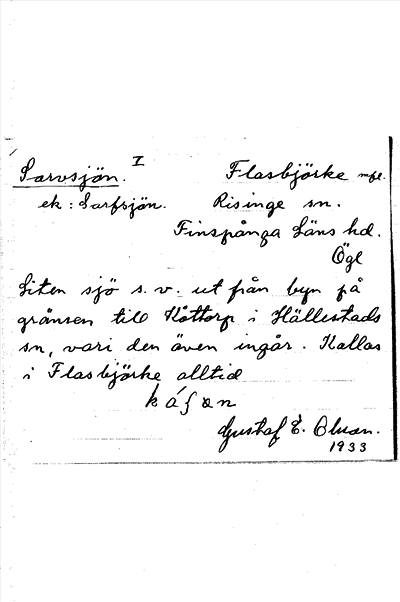 Sarvsjön. I Flasbjörke mfl.
ek: Sarfsjön. Risinge sn.
Finspånga Läns hd.
Ögl
Liten sjö s.v. ut från byn på
gränsen till Kåttorp i Hällestads
sn, vari den även ingår. Kallas
i Flasbjörke alltid
Gustaf E. Olsson.
1933